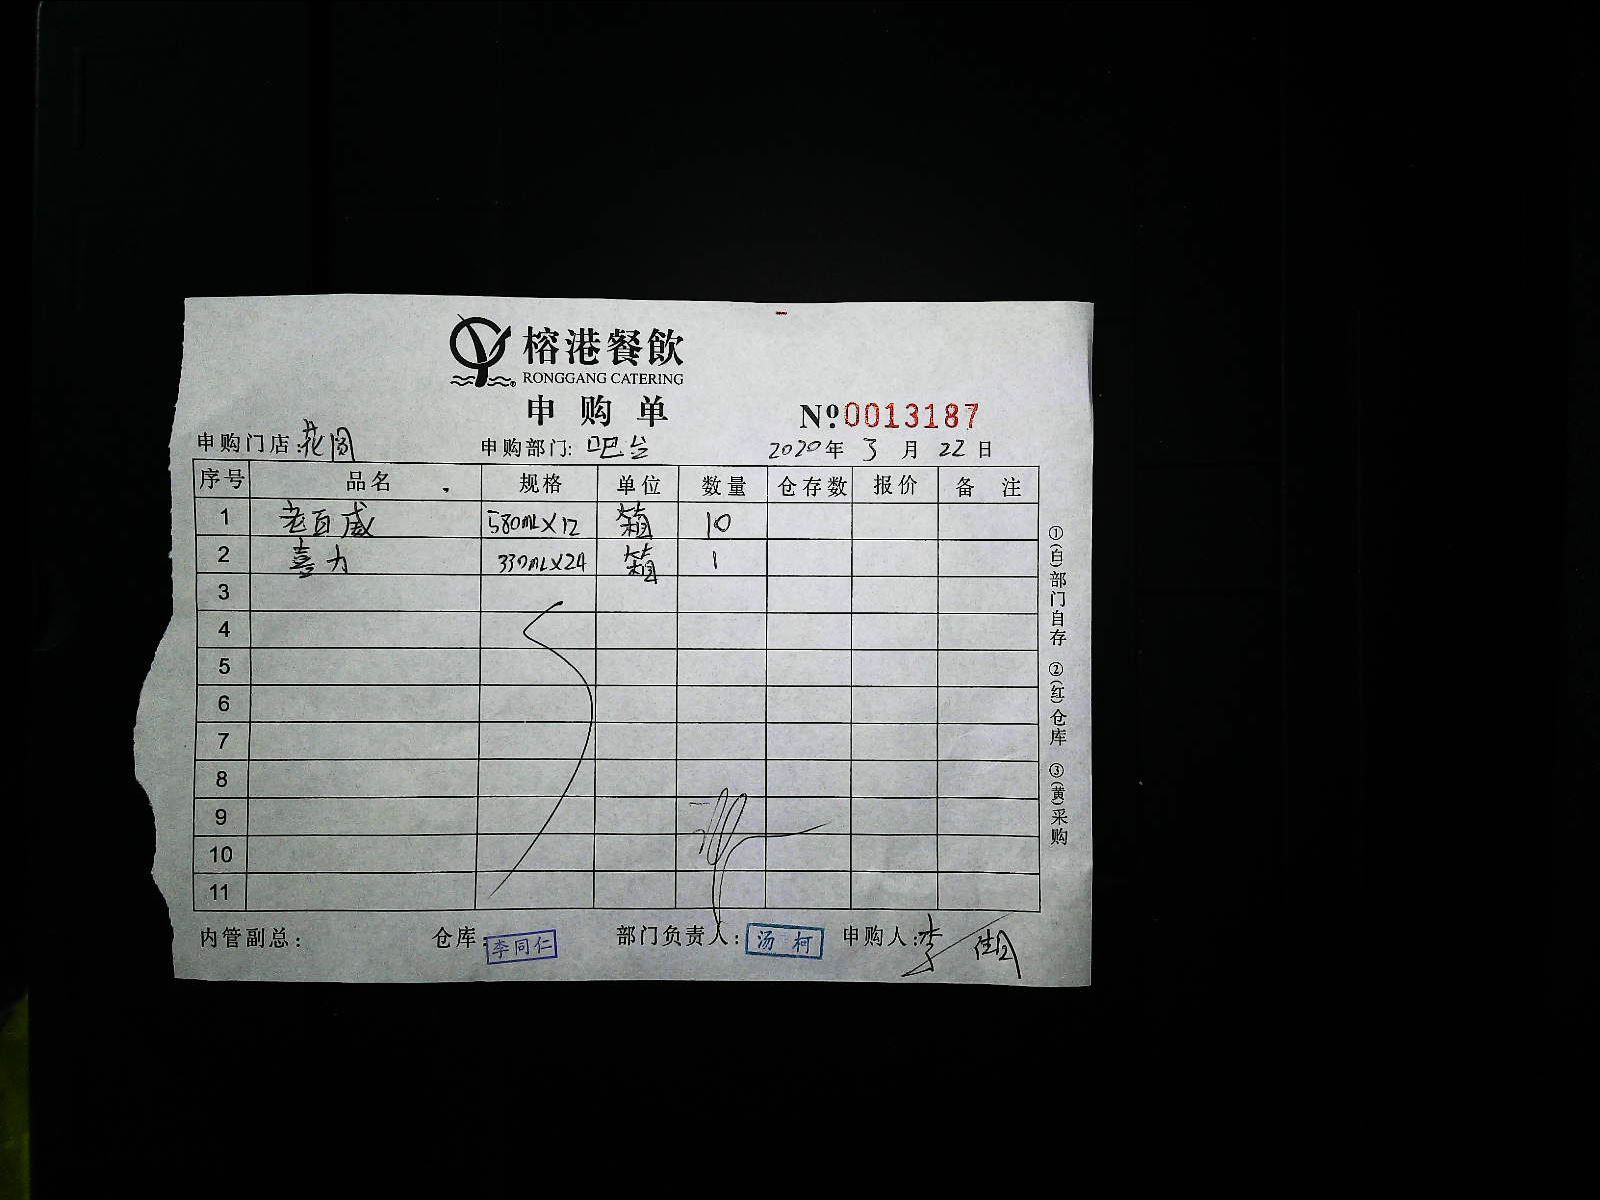 榕港餐飲
RONGGANG CATERING
申购单 Nº 0013187
申购门店:花园 申购部门:吧台 2020年3月22日
序号 品名 规格 单位 数量 仓存数 报价 备注
1 老百威 580mL×12 箱 10
2 喜力 330mL×24 箱 1
3
4
5
6
7
8
9
10
11
内管副总: 仓库:李同仁 部门负责人:汤柯 申购人:李
①(白)部门自存 ②(红)仓库 ③(黄)采购